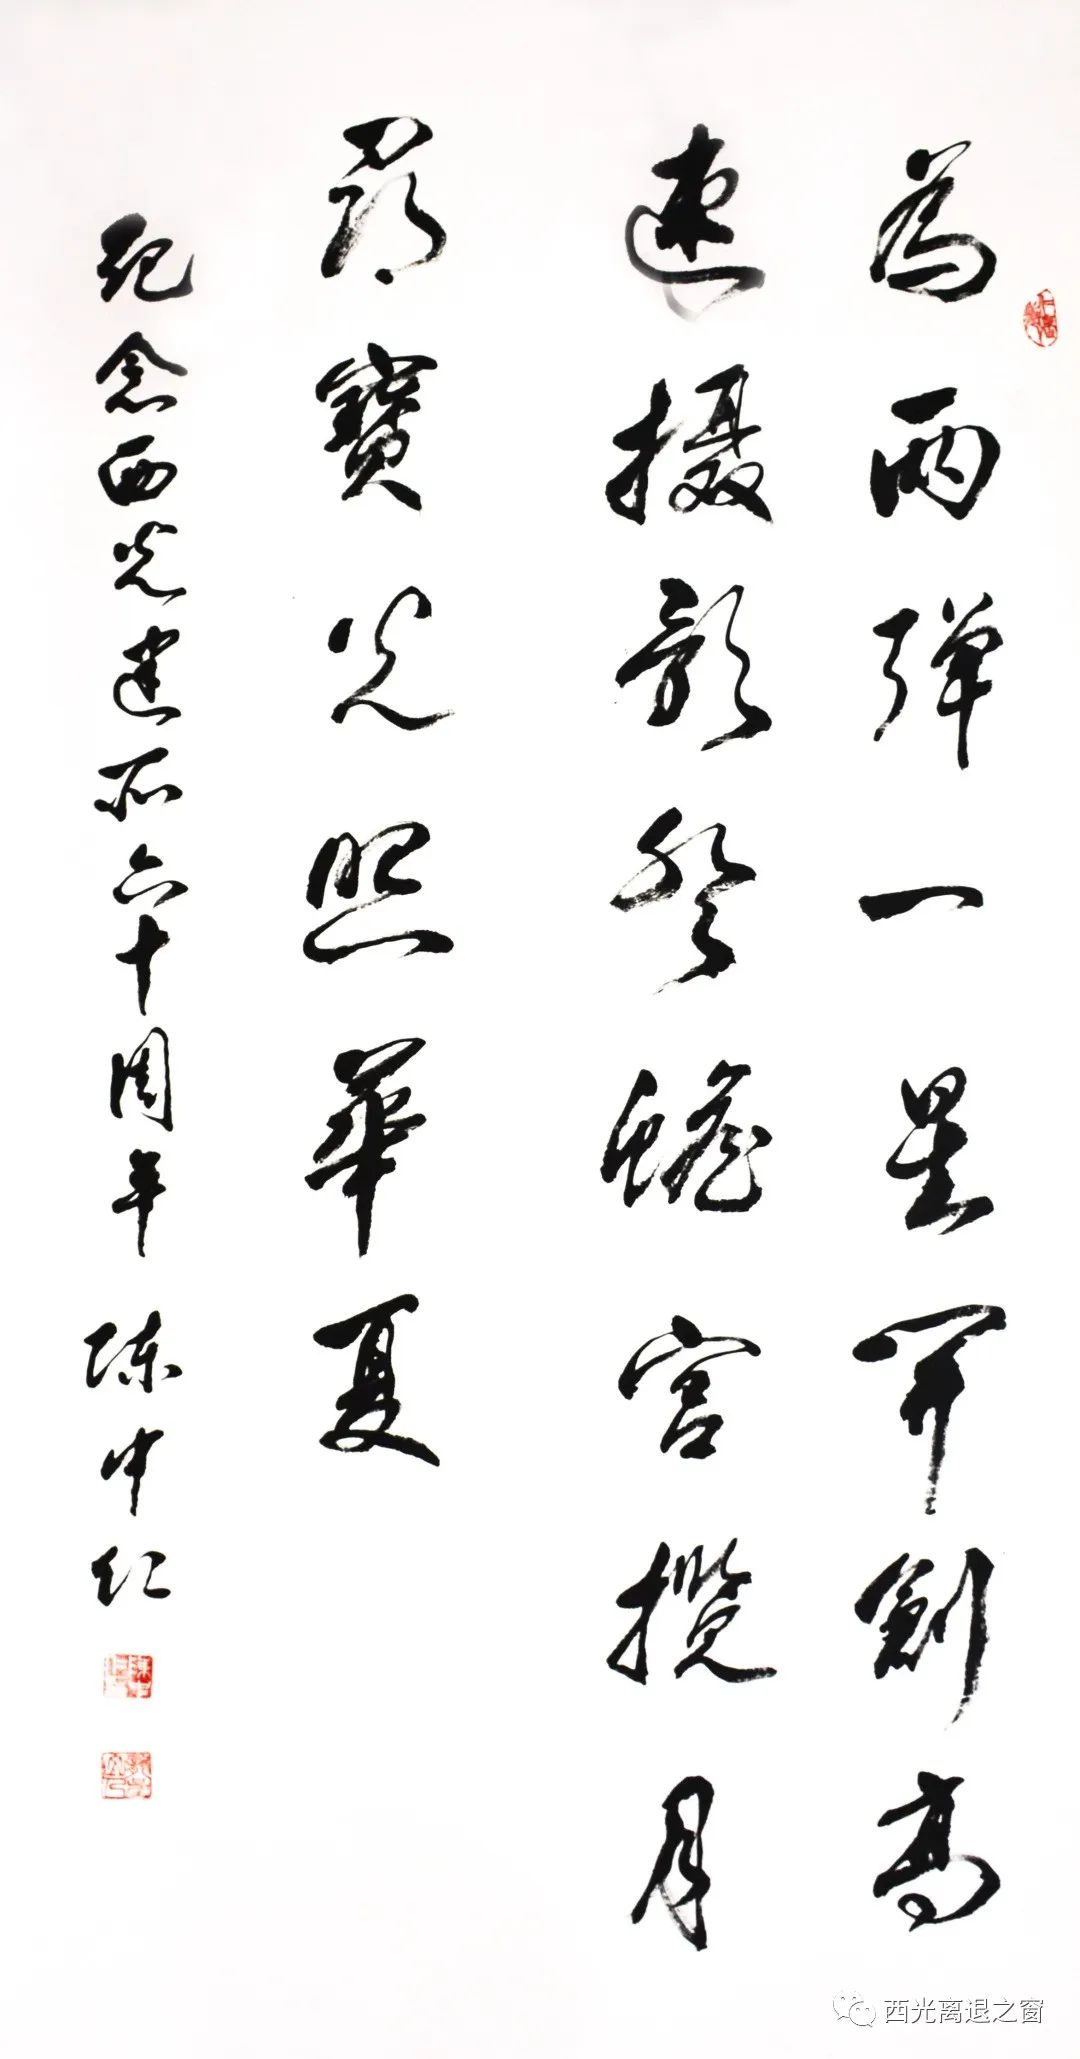 為兩彈一星開創高
速摄影登蟾宫揽月
尋寶光照華夏
纪念西光建所六十周年 陈中仁
西光离退之窗